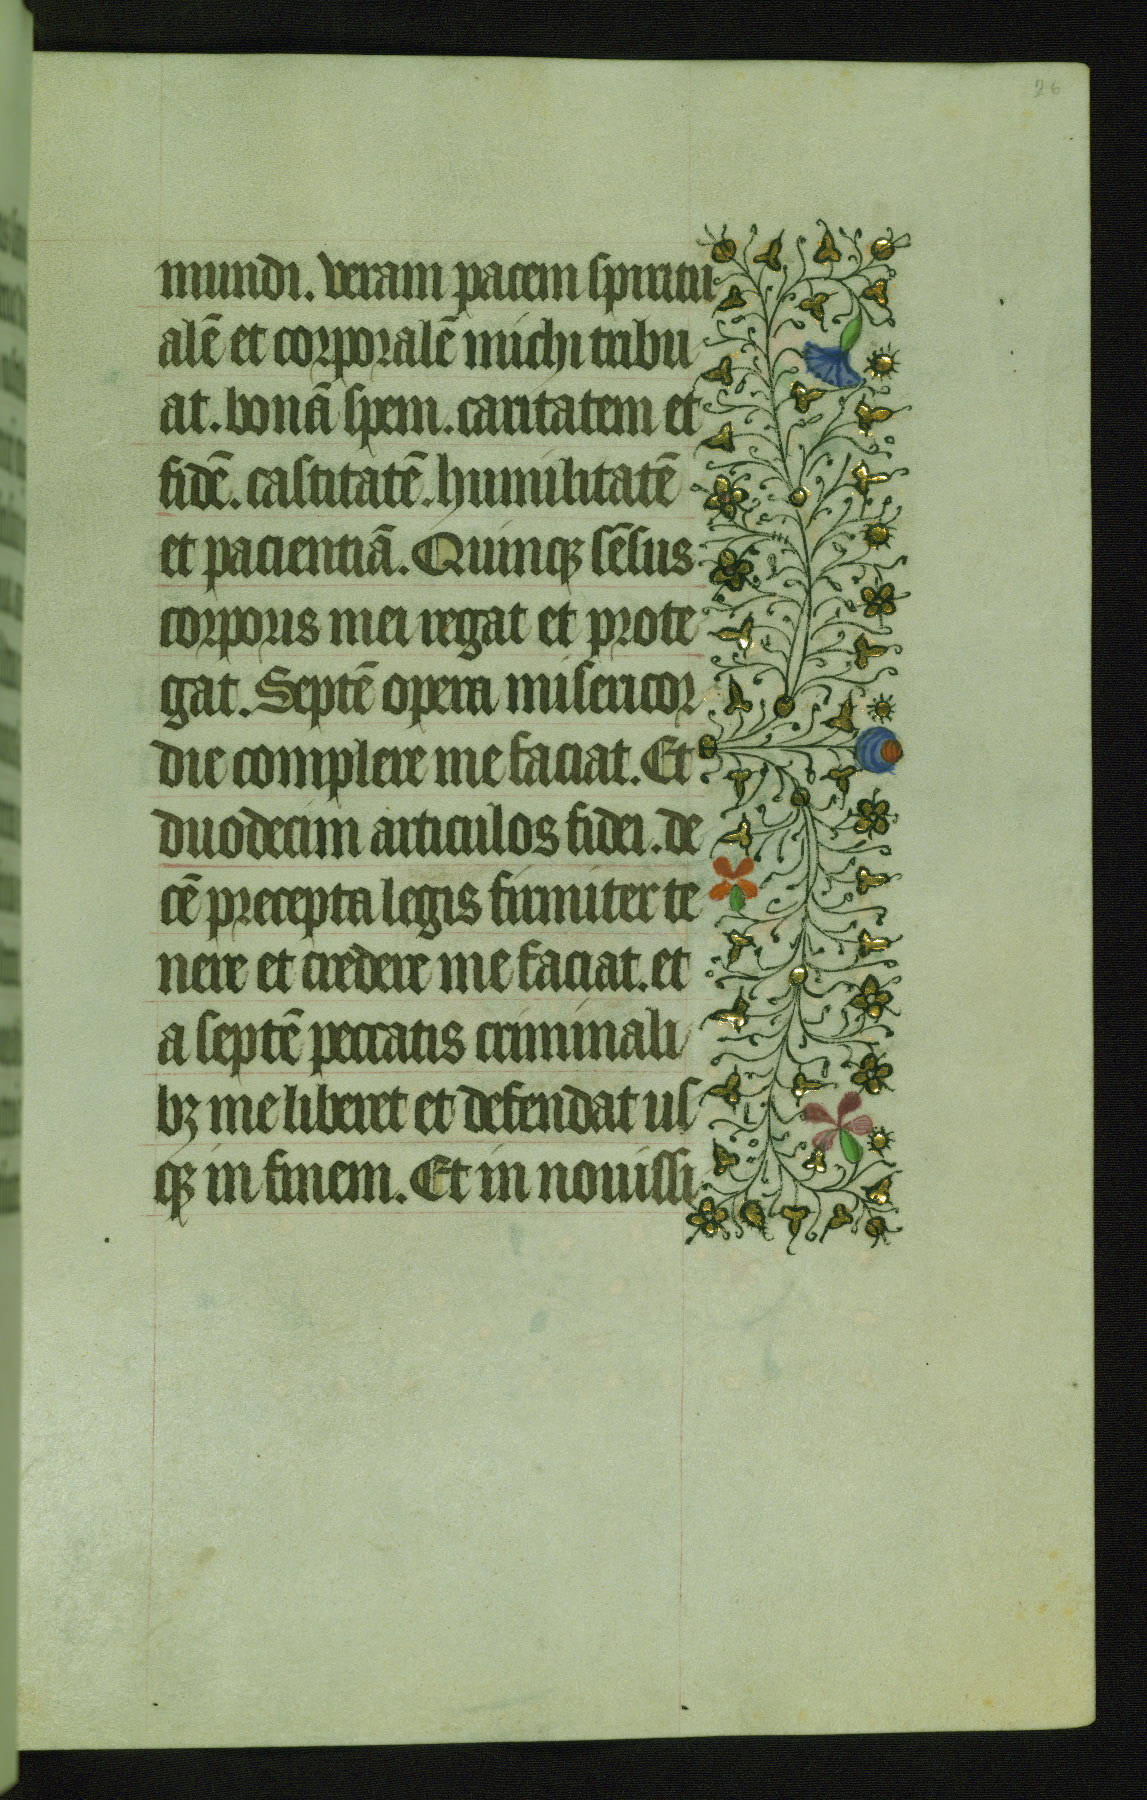 26
mundi. veram pacem spiritu
alē et corporalē michi tribu
at. bonā spem. caritatem et
fidē. castitatē. humilitatē
et pacientiā. Quinqꝫ sēsus
corporis mei regat et prote
gat. Septē opera misericor
die complere me faciat. Et
duodecim articulos fidei. de
cē precepta legis firmiter te
nere et credere me faciat. et
a septē peccatis criminali
bꝫ me liberet et defendat us
qꝫ in finem. Et in nouissi